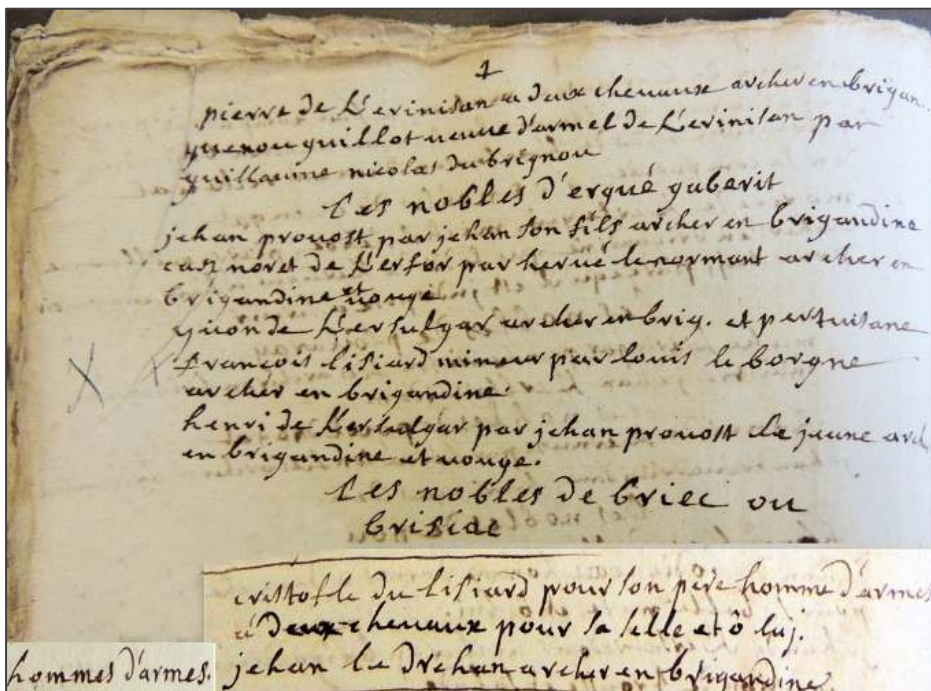 1
pierre de Kerinisan a deux cheuaux archer en brigan.
guenou guillot ueuue d'armel de Kerinisan par
guillaume nicolas du brignou
Les nobles d'ergué gaberit
jehan prouost par jehan son fils archer en brigandine
noret de Kerfor par herué le normant archer en
brigandine et uouge
yuon de Kersulgar archer en brig. et pertuisane
françois lisiard mineur par louis le borgne
archer en brigandine.
henri de Kersulgar par jehan prouost le jeune arch
en brigandine et uouge.
Les nobles de briec ou
brisiac
cristofle du lisiard pour son pere homme d'armes
a deux cheuaux pour sa selle et ô luj.
hommes d'armes.
jehan le Drehan archer en brigandine